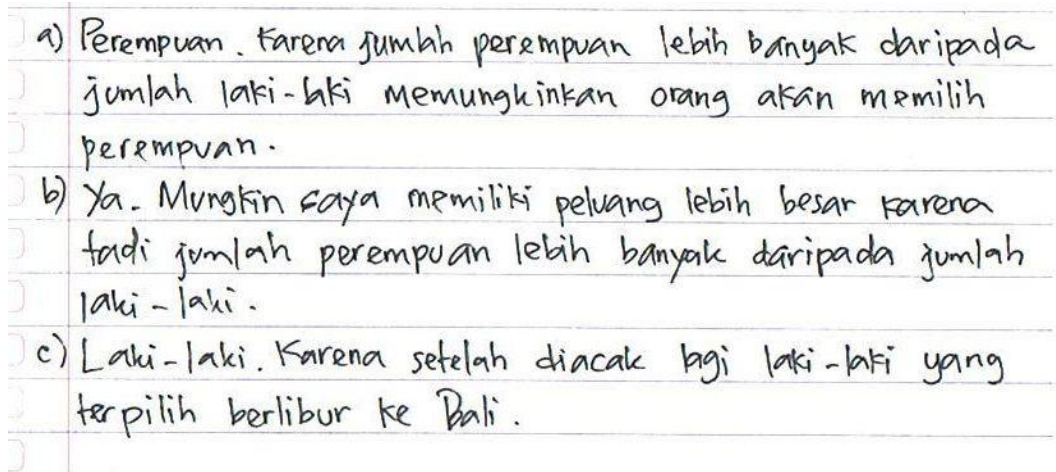 a) Perempuan. Karena jumlah perempuan lebih banyak daripada
jumlah laki-laki memungkinkan orang akan memilih
perempuan.
b) Ya. Mungkin saya memiliki peluang lebih besar karena
tadi jumlah perempuan lebih banyak daripada jumlah
laki-laki.
c) Laki-laki. Karena setelah diacak lagi laki-laki yang
terpilih berlibur ke Bali.